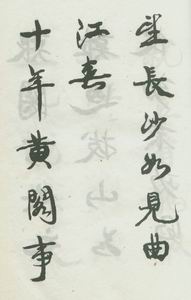 望長沙如見曲
江春
十年黄閣事